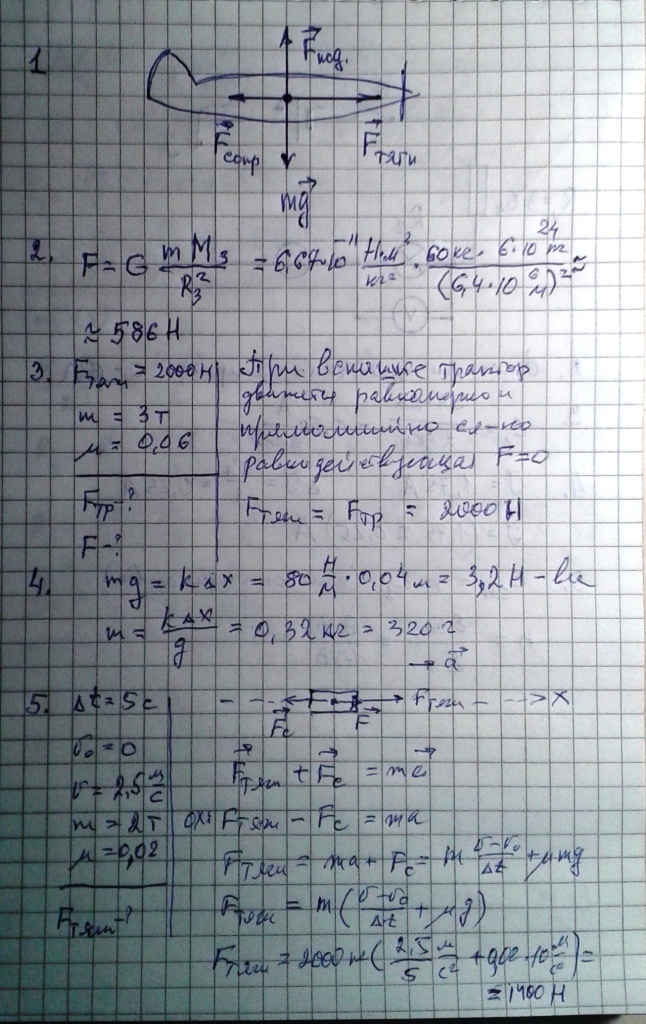 1
F⃗под.
F⃗сопр
F⃗тяги
mg⃗
2. F = G m M₃ / R₃² = 6,67·10⁻¹¹ Н·м²/кг² · 60кг · 6·10²⁴ кг / (6,4·10⁶ м)² ≈
≈ 586 Н
3. Fтяги = 2000 Н
m = 3 т
μ = 0,06
Fтр - ?
F - ?
При вспашке трактор
движется равномерно и
прямолинейно сл-но
равнодействующая F=0
Fтяги = Fтр = 2000 Н
4. mg = kΔx = 80 Н/м · 0,04 м = 3,2 Н - вес
m = kΔx / g = 0,32 кг = 320 г
5. Δt = 5 с
υ₀ = 0
υ = 2,5 м/с
m = 2 т
μ = 0,02
Fтяги - ?
→ a⃗
F⃗с F⃗ Fтяги X
F⃗тяги + F⃗с = ma⃗
ох: Fтяги - Fс = ma
Fтяги = ma + Fс = m (υ-υ₀)/Δt + μmg
Fтяги = m ( (υ-υ₀)/Δt + μg )
Fтяги = 2000 кг ( 2,5/5 м/с² + 0,02 · 10 м/с² ) =
= 1400 Н